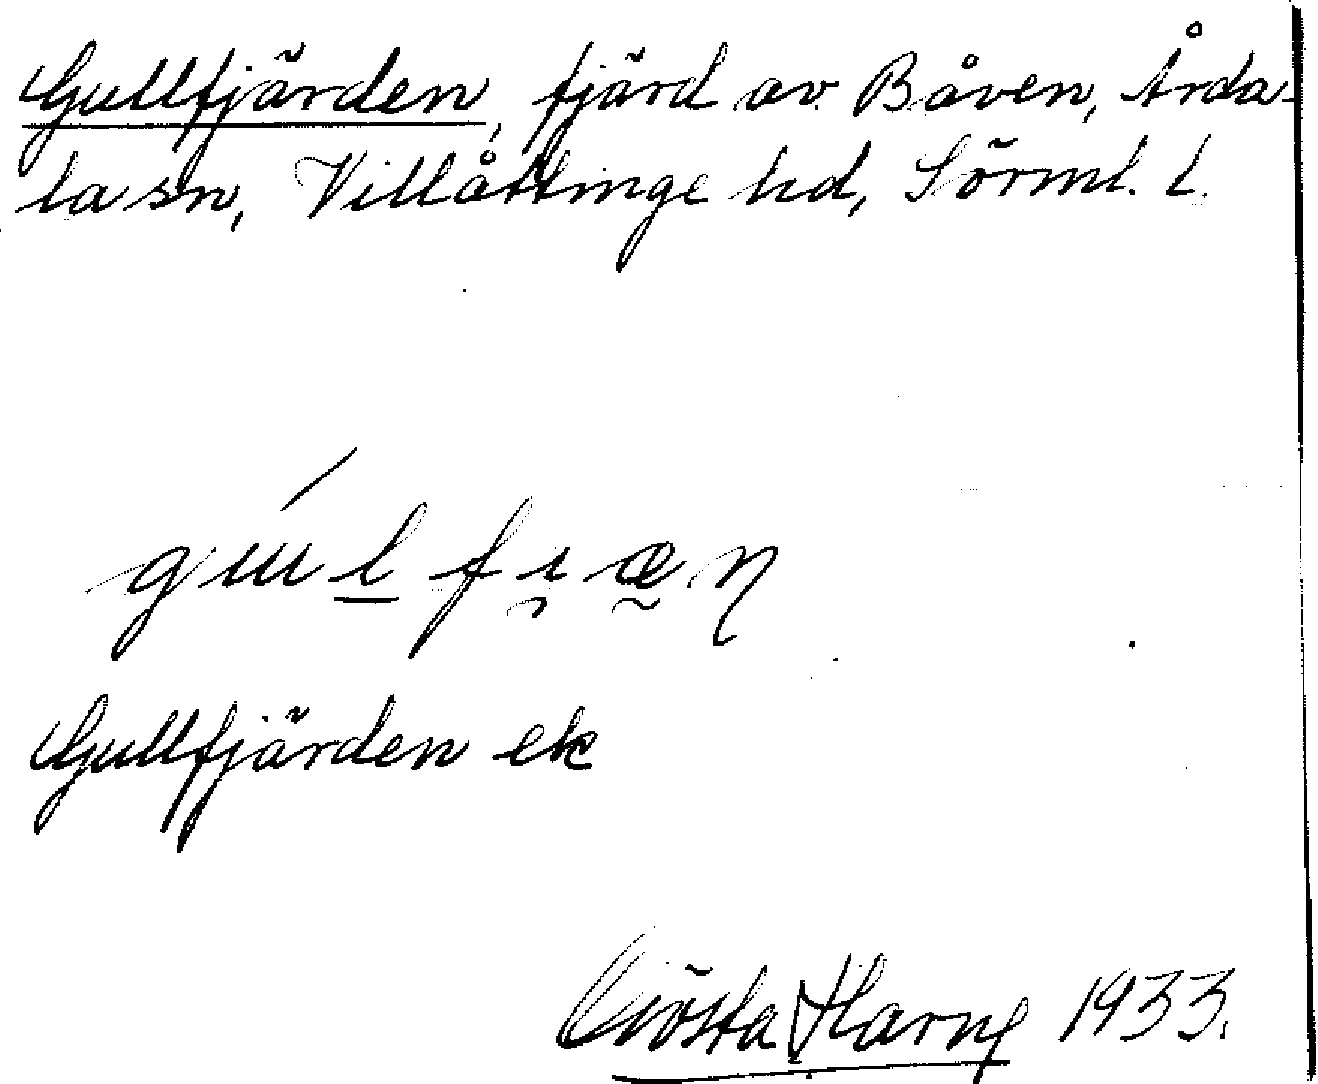 Gullfjärden, fjärd av Båven, Årda-
la sn, Villåttinge hd, Sörml. l.
Gullfjärden ek
Gösta Harne 1933.